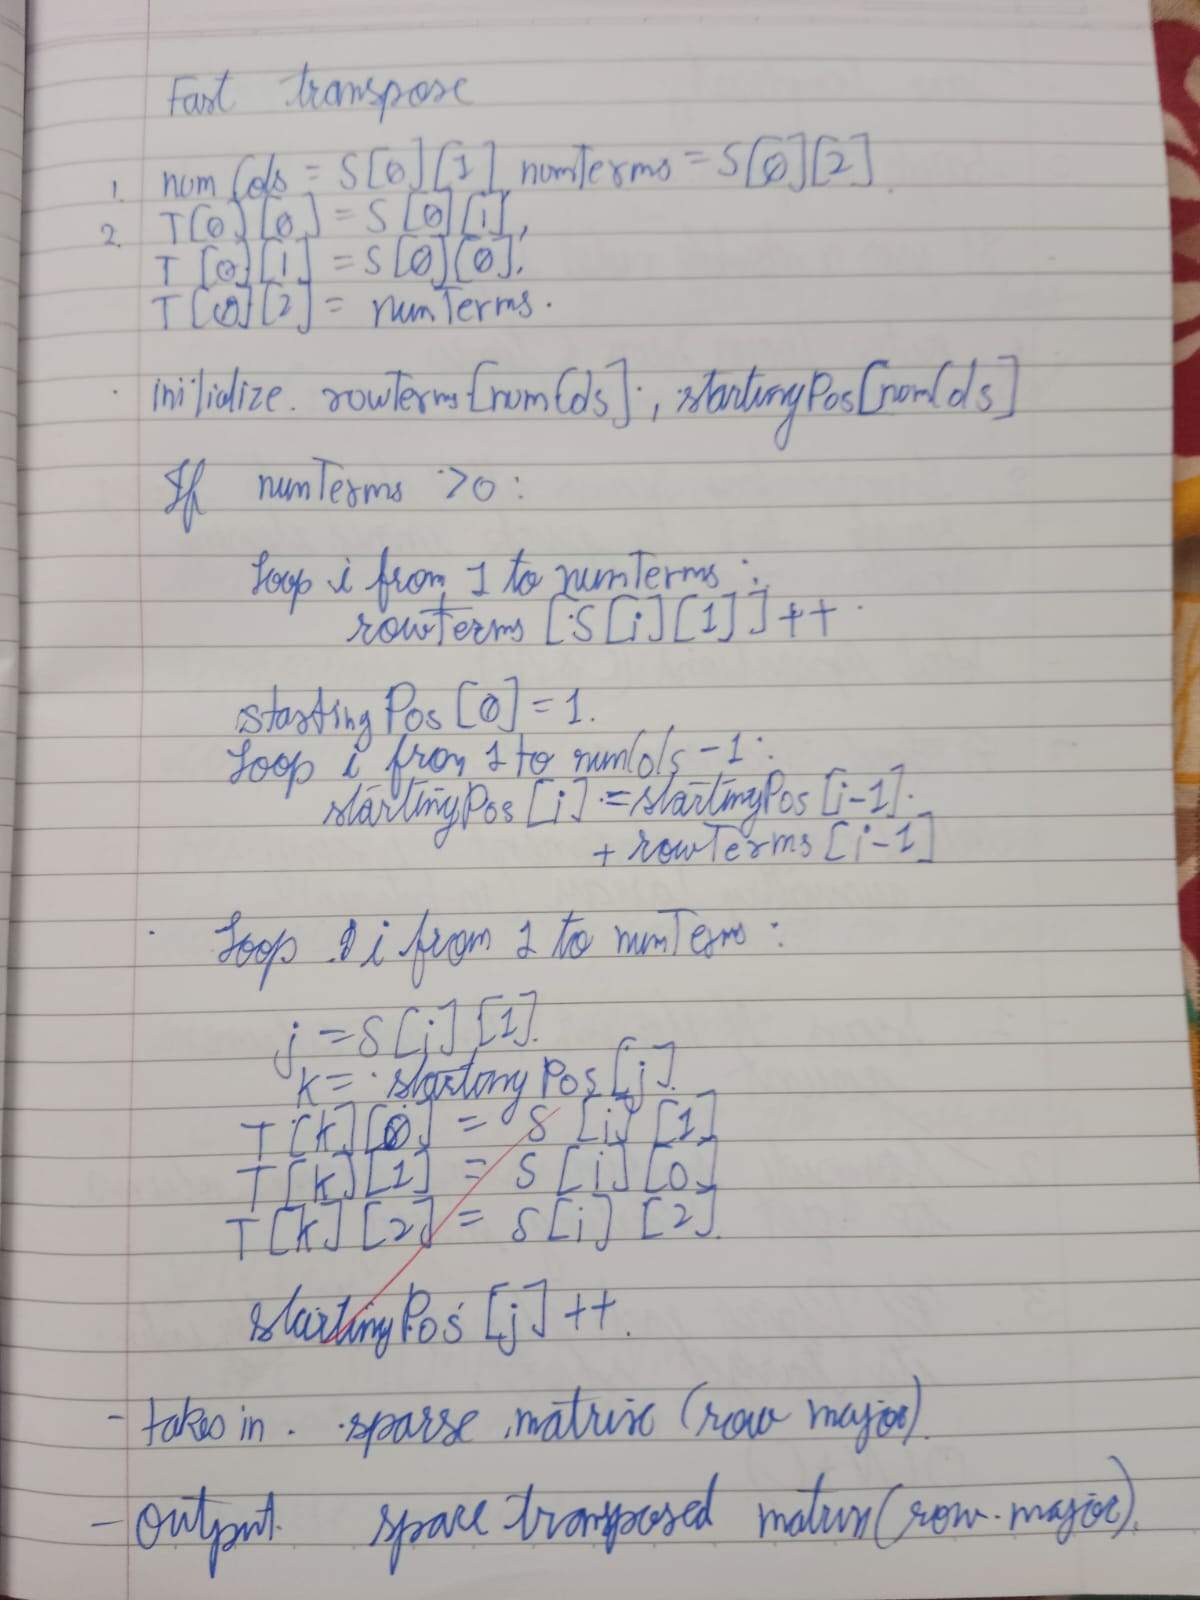 Fast transpose
1. numCols = S[0][1], numTerms = S[0][2].
2. T[0][0] = S[0][1],
T[0][1] = S[0][0],
T[0][2] = numTerms.
· initialize. rowTerms[numCols], startingPos[numCols]
If numTerms >0:
Loop i from 1 to numTerms :
rowTerms [S[i][1]]++.
startingPos[0]=1.
Loop i from 1 to numCols -1:
startingPos[i] = startingPos[i-1].
+ rowTerms[i-1]
· Loop i from 1 to numTerms :
j = S[i][1].
k = startingPos[j].
T[k][0] = S[i][1]
T[k][1] = S[i][0]
T[k][2] = S[i][2].
startingPos[j]++.
- takes in. sparse matrix (row major).
- output. space transposed matrix (row. major).